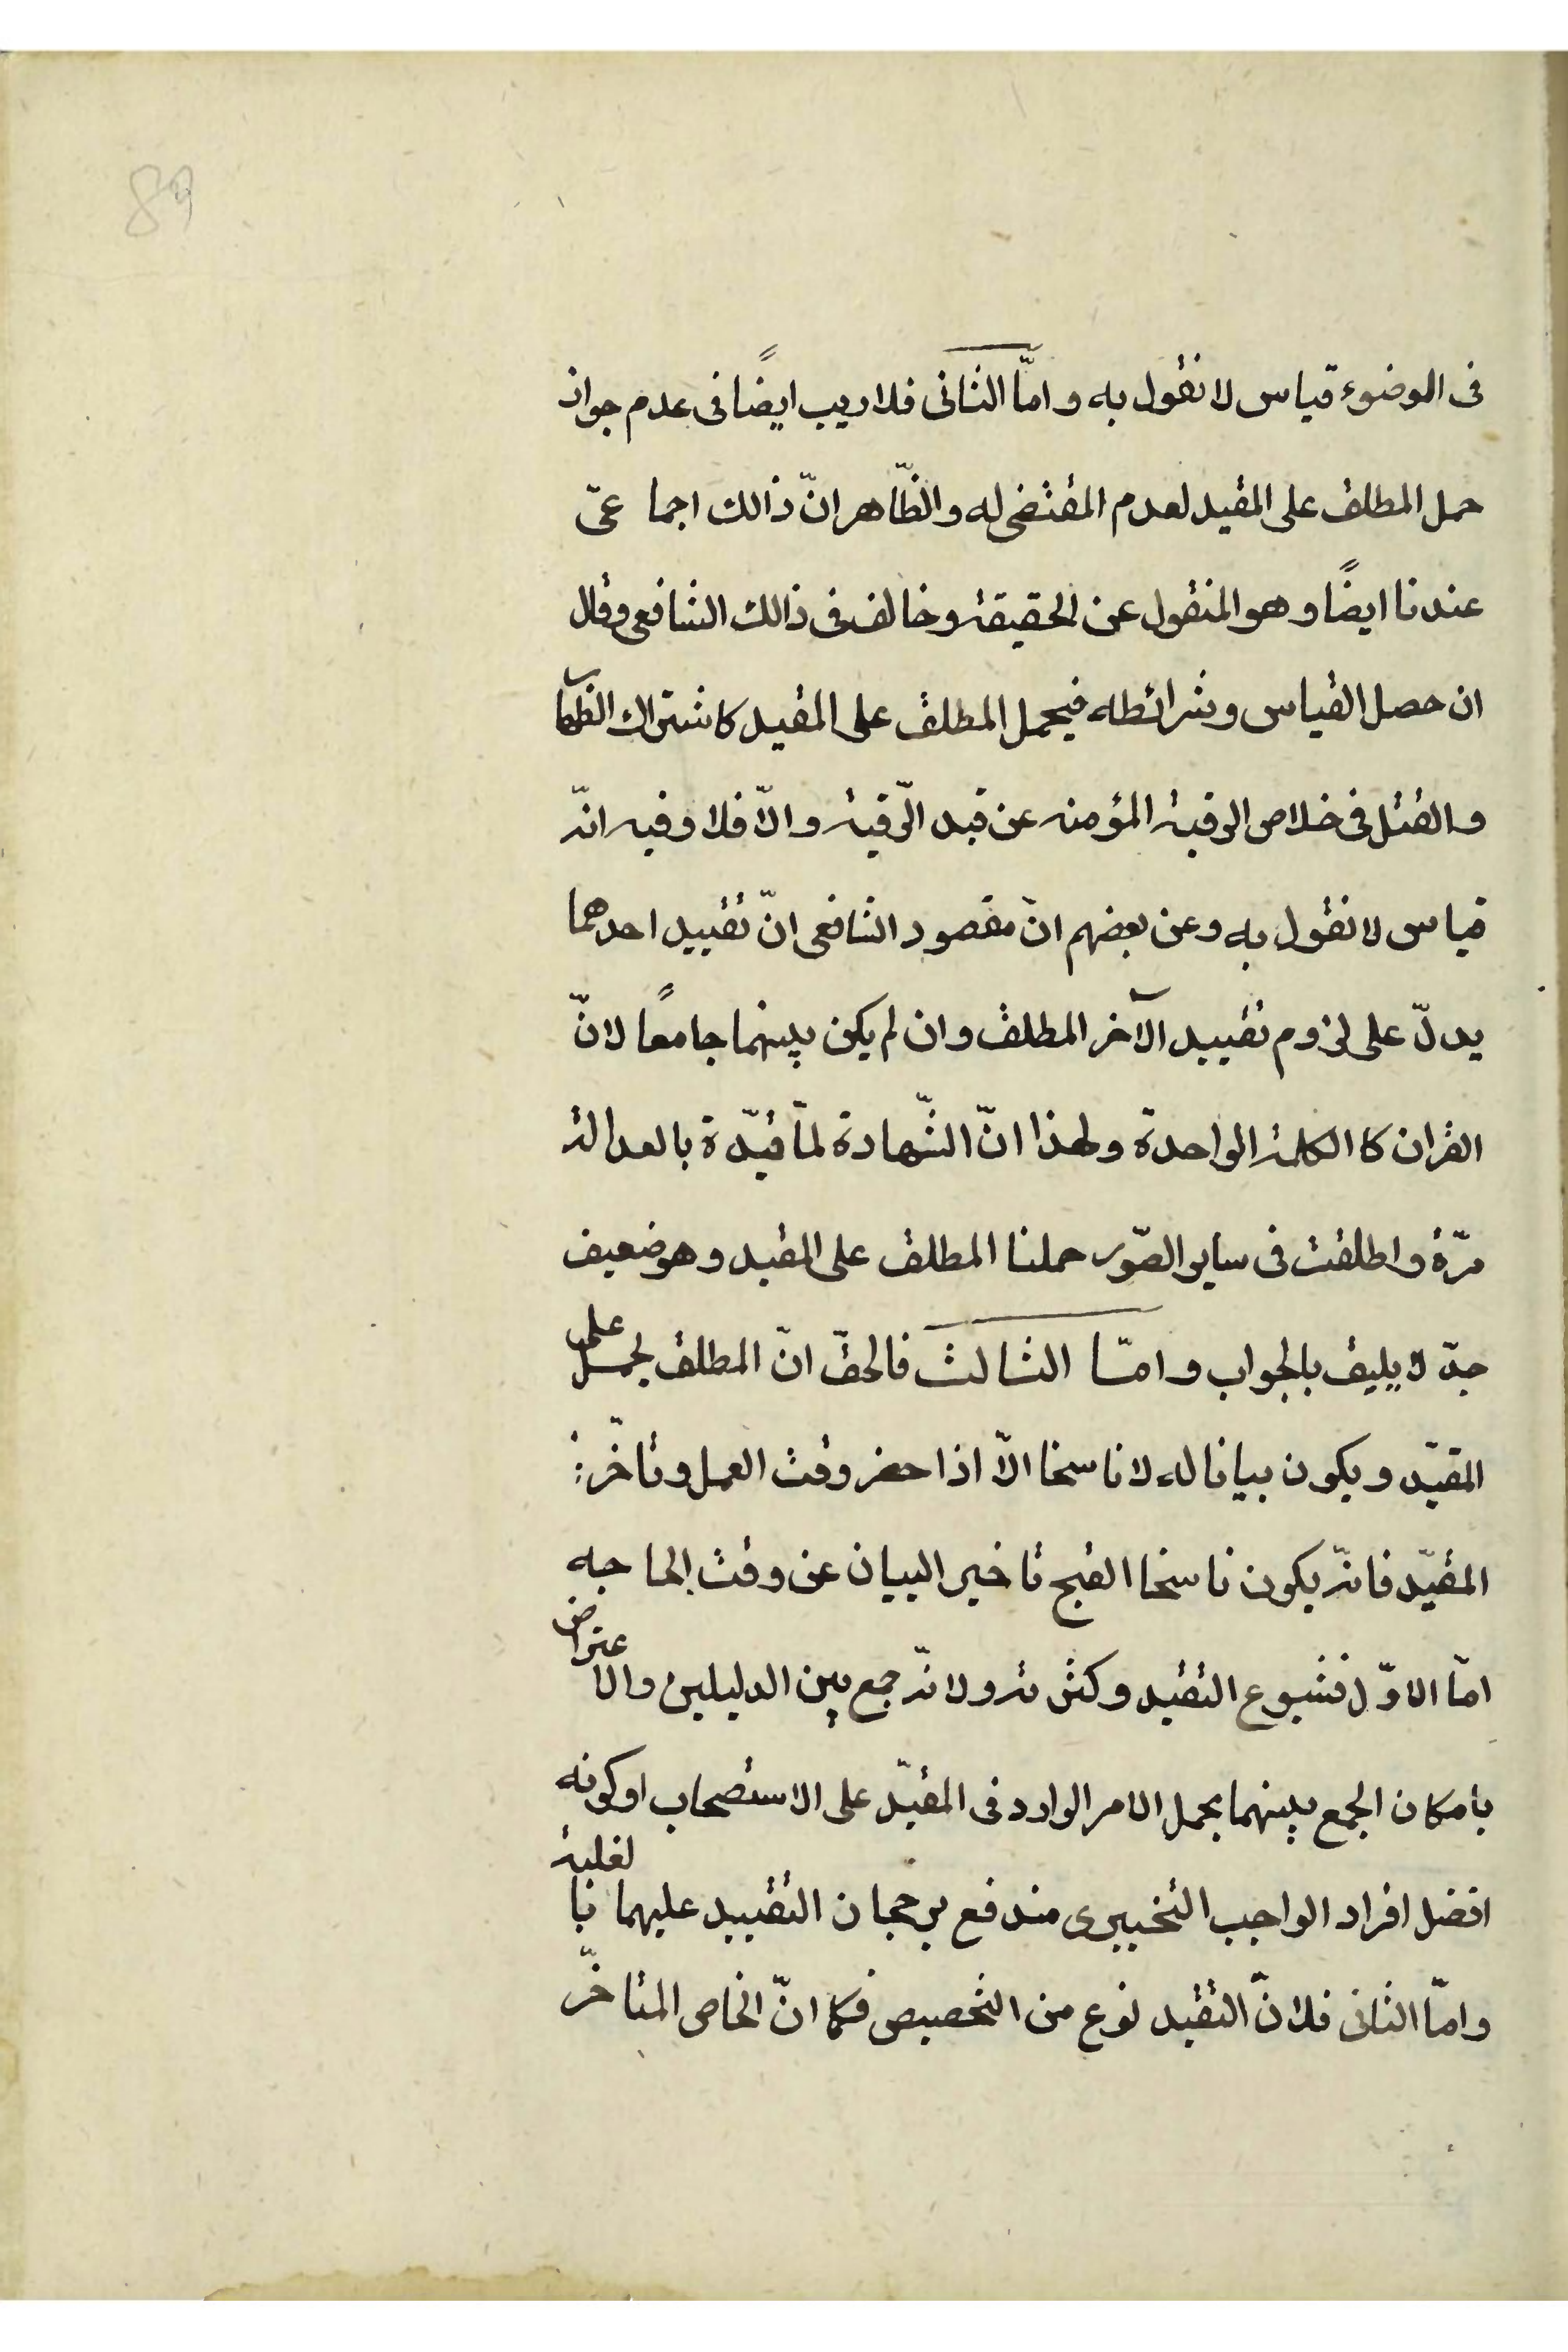 89
فى الموضوء قياس لا نقول به و امّا الثانى فلا ريب ايضًا فى عدم جواز
حمل المطلق على المقيد لعدم المقتضى له و الظّاهر انّ ذالك اجماعىّ
عندنا ايضًا و هو المنقول عن الحقيقة و خالف فى ذالك الشافعى و قال
ان حصل القياس و شرائطه فيحمل المطلق على المقيد كاشتراك الظهار
و القتل فى خلاص الرقبة المؤمنه عن قيد الرّقية و الّا فلا و فيه انّه
قياس لا نقول به و عن بعضهم انّ مقصود الشافعى انّ تقييد احدهما
يدلّ على لزوم تقييد الآخر المطلق و ان لم يكن بينهما جامعًا لانّ
القران كا الكلمة الواحدة و لهذا انّ الشّهادة لمّا قيّدة بالعدالة
مرّة و اطلقت فى ساير الصّور حملنا المطلق على المقيد و هو ضعيف
جدّ لا يليق بالجواب و امّا الثالث فالحقّ انّ المطلق يحمل على
المقيّد و يكون بيانا له لا ناسخا الّا اذا حضر وقت العمل و تأخّر
المقيّد فانّه يكون ناسخا القبح تاخير البيان عن وقت الحاجه
امّا الاوّل فشيوع التقيد و كثرته و لانّه جمع بين الدليلين و الاعتراض
بامكان الجمع بينهما بحمل الامر الوارد فى المقيّد على الاستصحاب او كونه
افضل افراد الواجب التخييرى مندفع برجحان التقييد عليهما بالغلبة
و امّا الثانى فلانّ التقيد نوع من التخصيص فكما انّ الخاص المتاخّر